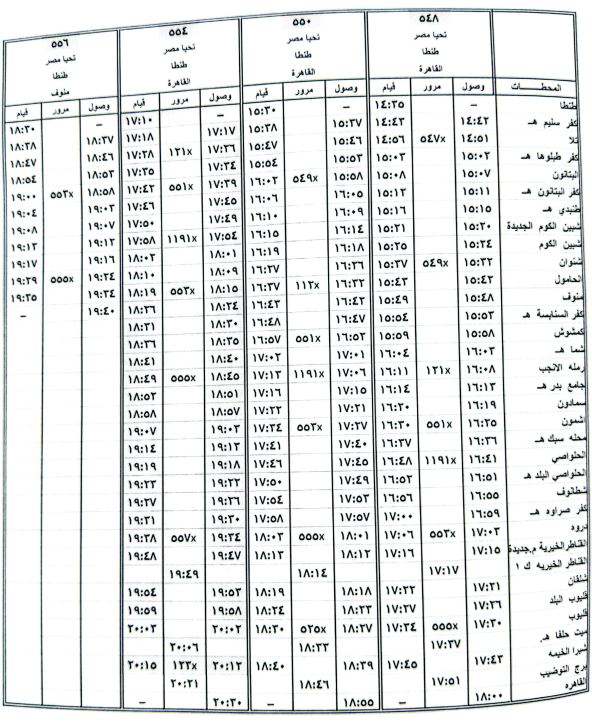 ٥٤٨
تحيا مصر
طنطا
القاهرة
٥٥٠
تحيا مصر
طنطا
القاهرة
٥٥٤
تحيا مصر
طنطا
القاهرة
٥٥٦
تحيا مصر
طنطا
منوف
المحطات وصول مرور قيام وصول مرور قيام وصول مرور قيام وصول مرور قيام
طنطا – ١٤:٣٥ – ١٥:٣٠ – ١٧:١٠ – ١٨:٣٠
كفر سنيم هـ ١٤:٤٢ ١٤:٤٣ ١٥:٣٧ ١٥:٣٨ ١٧:١٧ ١٧:١٨ ١٨:٣٧ ١٨:٣٨
تلا ١٤:٥١ ٥٤٧x ١٤:٥٦ ١٥:٤٦ ١٥:٤٧ ١٧:٢٦ ١٢١x ١٧:٢٨ ١٨:٤٦ ١٨:٤٧
كفر طبلوها هـ ١٥:٠٢ ١٥:٠٣ ١٥:٥٣ ١٥:٥٤ ١٧:٣٤ ١٧:٣٥ ١٨:٥٣ ١٨:٥٤
البتانون ١٥:٠٧ ١٥:٠٨ ١٥:٥٨ ٥٤٩x ١٦:٠٣ ١٧:٣٩ ٥٥١x ١٧:٤٢ ١٨:٥٨ ٥٥٣x ١٩:٠٠
كفر البتانون هـ ١٥:١١ ١٥:١٢ ١٦:٠٥ ١٦:٠٦ ١٧:٤٥ ١٧:٤٦ ١٩:٠٣ ١٩:٠٤
طنبدي هـ ١٥:١٥ ١٥:١٦ ١٦:٠٩ ١٦:١٠ ١٧:٤٩ ١٧:٥٠ ١٩:٠٧ ١٩:٠٨
شبين الكوم الجديدة ١٥:٢٠ ١٥:٢١ ١٦:١٤ ١٦:١٥ ١٧:٥٤ ١١٩١x ١٧:٥٨ ١٩:١٢ ١٩:١٣
شبين الكوم ١٥:٢٤ ١٥:٢٥ ١٦:١٨ ١٦:١٩ ١٨:٠١ ١٨:٠٢ ١٩:١٦ ١٩:١٧
شنوان ١٥:٣٢ ٥٤٩x ١٥:٣٧ ١٦:٢٦ ١٦:٢٧ ١٨:٠٩ ١٨:١٠ ١٩:٢٤ ٥٥٥x ١٩:٢٩
الحامول ١٥:٤٢ ١٥:٤٣ ١٦:٣٢ ١١٢x ١٦:٣٧ ١٨:١٥ ٥٥٣x ١٨:١٩ ١٩:٣٤ ١٩:٣٥
منوف ١٥:٤٨ ١٥:٤٩ ١٦:٤٢ ١٦:٤٣ ١٨:٢٤ ١٨:٢٦ ١٩:٤٠ –
كفر السنابسة هـ ١٥:٥٣ ١٥:٥٤ ١٦:٤٧ ١٦:٤٨ ١٨:٣٠ ١٨:٣١
كمشوش ١٥:٥٨ ١٥:٥٩ ١٦:٥٢ ٥٥١x ١٦:٥٧ ١٨:٣٥ ١٨:٣٦
شما هـ ١٦:٠٣ ١٦:٠٤ ١٧:٠١ ١٧:٠٢ ١٨:٤٠ ١٨:٤١
رمله الانجب ١٦:٠٨ ١٢١x ١٦:١١ ١٧:٠٦ ١١٩١x ١٧:١٣ ١٨:٤٥ ٥٥٥x ١٨:٤٩
جامع بدر هـ ١٦:١٣ ١٦:١٤ ١٧:١٥ ١٧:١٦ ١٨:٥١ ١٨:٥٢
سمادون ١٦:١٩ ١٦:٢٠ ١٧:٢١ ١٧:٢٢ ١٨:٥٧ ١٨:٥٨
اشمون ١٦:٢٥ ٥٥١x ١٦:٣٠ ١٧:٢٧ ٥٥٣x ١٧:٣٤ ١٩:٠٣ ١٩:٠٧
محله سبك هـ ١٦:٣٦ ١٦:٣٧ ١٧:٤٠ ١٧:٤١ ١٩:١٣ ١٩:١٤
الحلواصي ١٦:٤١ ١١٩١x ١٦:٤٨ ١٧:٤٥ ١٧:٤٦ ١٩:١٨ ١٩:١٩
الحلواصي البلد هـ ١٦:٥١ ١٦:٥٢ ١٧:٤٩ ١٧:٥٠ ١٩:٢٢ ١٩:٢٣
شطانوف ١٦:٥٥ ١٦:٥٦ ١٧:٥٣ ١٧:٥٤ ١٩:٢٦ ١٩:٢٧
كفر صراوه هـ ١٦:٥٩ ١٧:٠٠ ١٧:٥٧ ١٧:٥٨ ١٩:٣٠ ١٩:٣١
دروه ١٧:٠٣ ٥٥٣x ١٧:٠٦ ١٨:٠١ ٥٥٥x ١٨:٠٣ ١٩:٣٤ ٥٥٧x ١٩:٣٨
القناطر الخيرية م.جديدة ١٧:١٥ ١٧:١٦ ١٨:١٢ ١٨:١٣ ١٩:٤٧ ١٩:٤٨
القناطر الخيريه ك ١ ١٧:١٧ ١٨:١٤ ١٩:٤٩
شلقان ١٧:٢١ ١٧:٢٢ ١٨:١٨ ١٨:١٩ ١٩:٥٣ ١٩:٥٤
قليوب البلد ١٧:٢٦ ١٧:٢٧ ١٨:٢٣ ١٨:٢٤ ١٩:٥٨ ١٩:٥٩
قليوب ١٧:٣٠ ٥٥٥x ١٧:٣٤ ١٨:٢٧ ٥٢٥x ١٨:٣٠ ٢٠:٠٢ ٢٠:٠٣
ميت حلفا هـ ١٧:٣٧ ١٨:٣٣ ٢٠:٠٦
شبرا الخيمه ١٧:٤٣ ١٧:٤٥ ١٨:٣٩ ١٨:٤٠ ٢٠:١٢ ١٢٣x ٢٠:١٥
برج التوضيب ١٧:٥١ ١٨:٤٦ ٢٠:٢١
القاهره ١٨:٠٠ – ١٨:٥٥ – ٢٠:٣٠ –